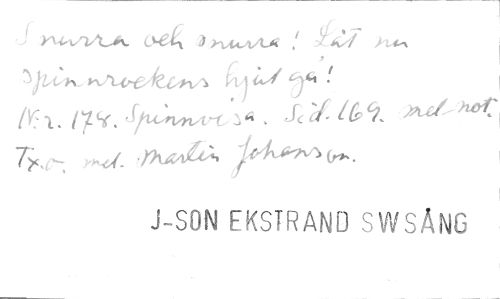 Snurra och snurra! Låt nu
spinnrockens hjul gå!
N:r. 178. Spinnvisa. Sid. 169. mel-not.
Tx.o. mel. Martin Johanson.
J-SON EKSTRAND SWSÅNG